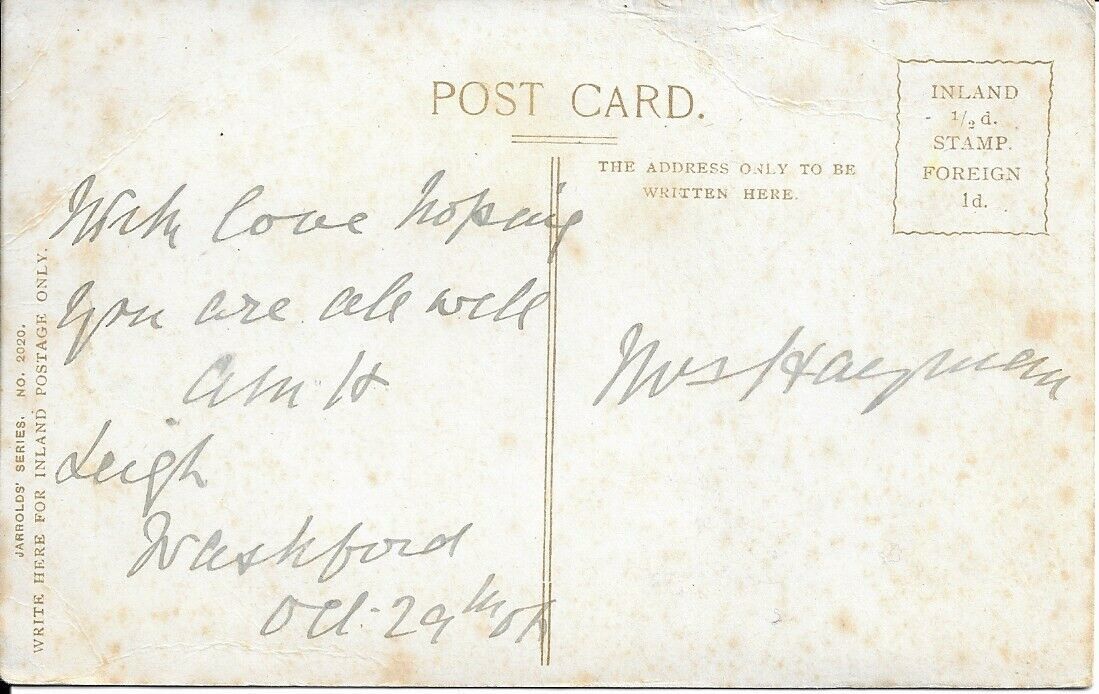 POST CARD.
THE ADDRESS ONLY TO BE
WRITTEN HERE.
INLAND
1/2 d.
STAMP.
FOREIGN
1d.
JARROLDS' SERIES. NO. 2020.
WRITE HERE FOR INLAND POSTAGE ONLY.
With love hoping
you are all well
Leigh
Washford
Oct. 29th
Mrs Hayman